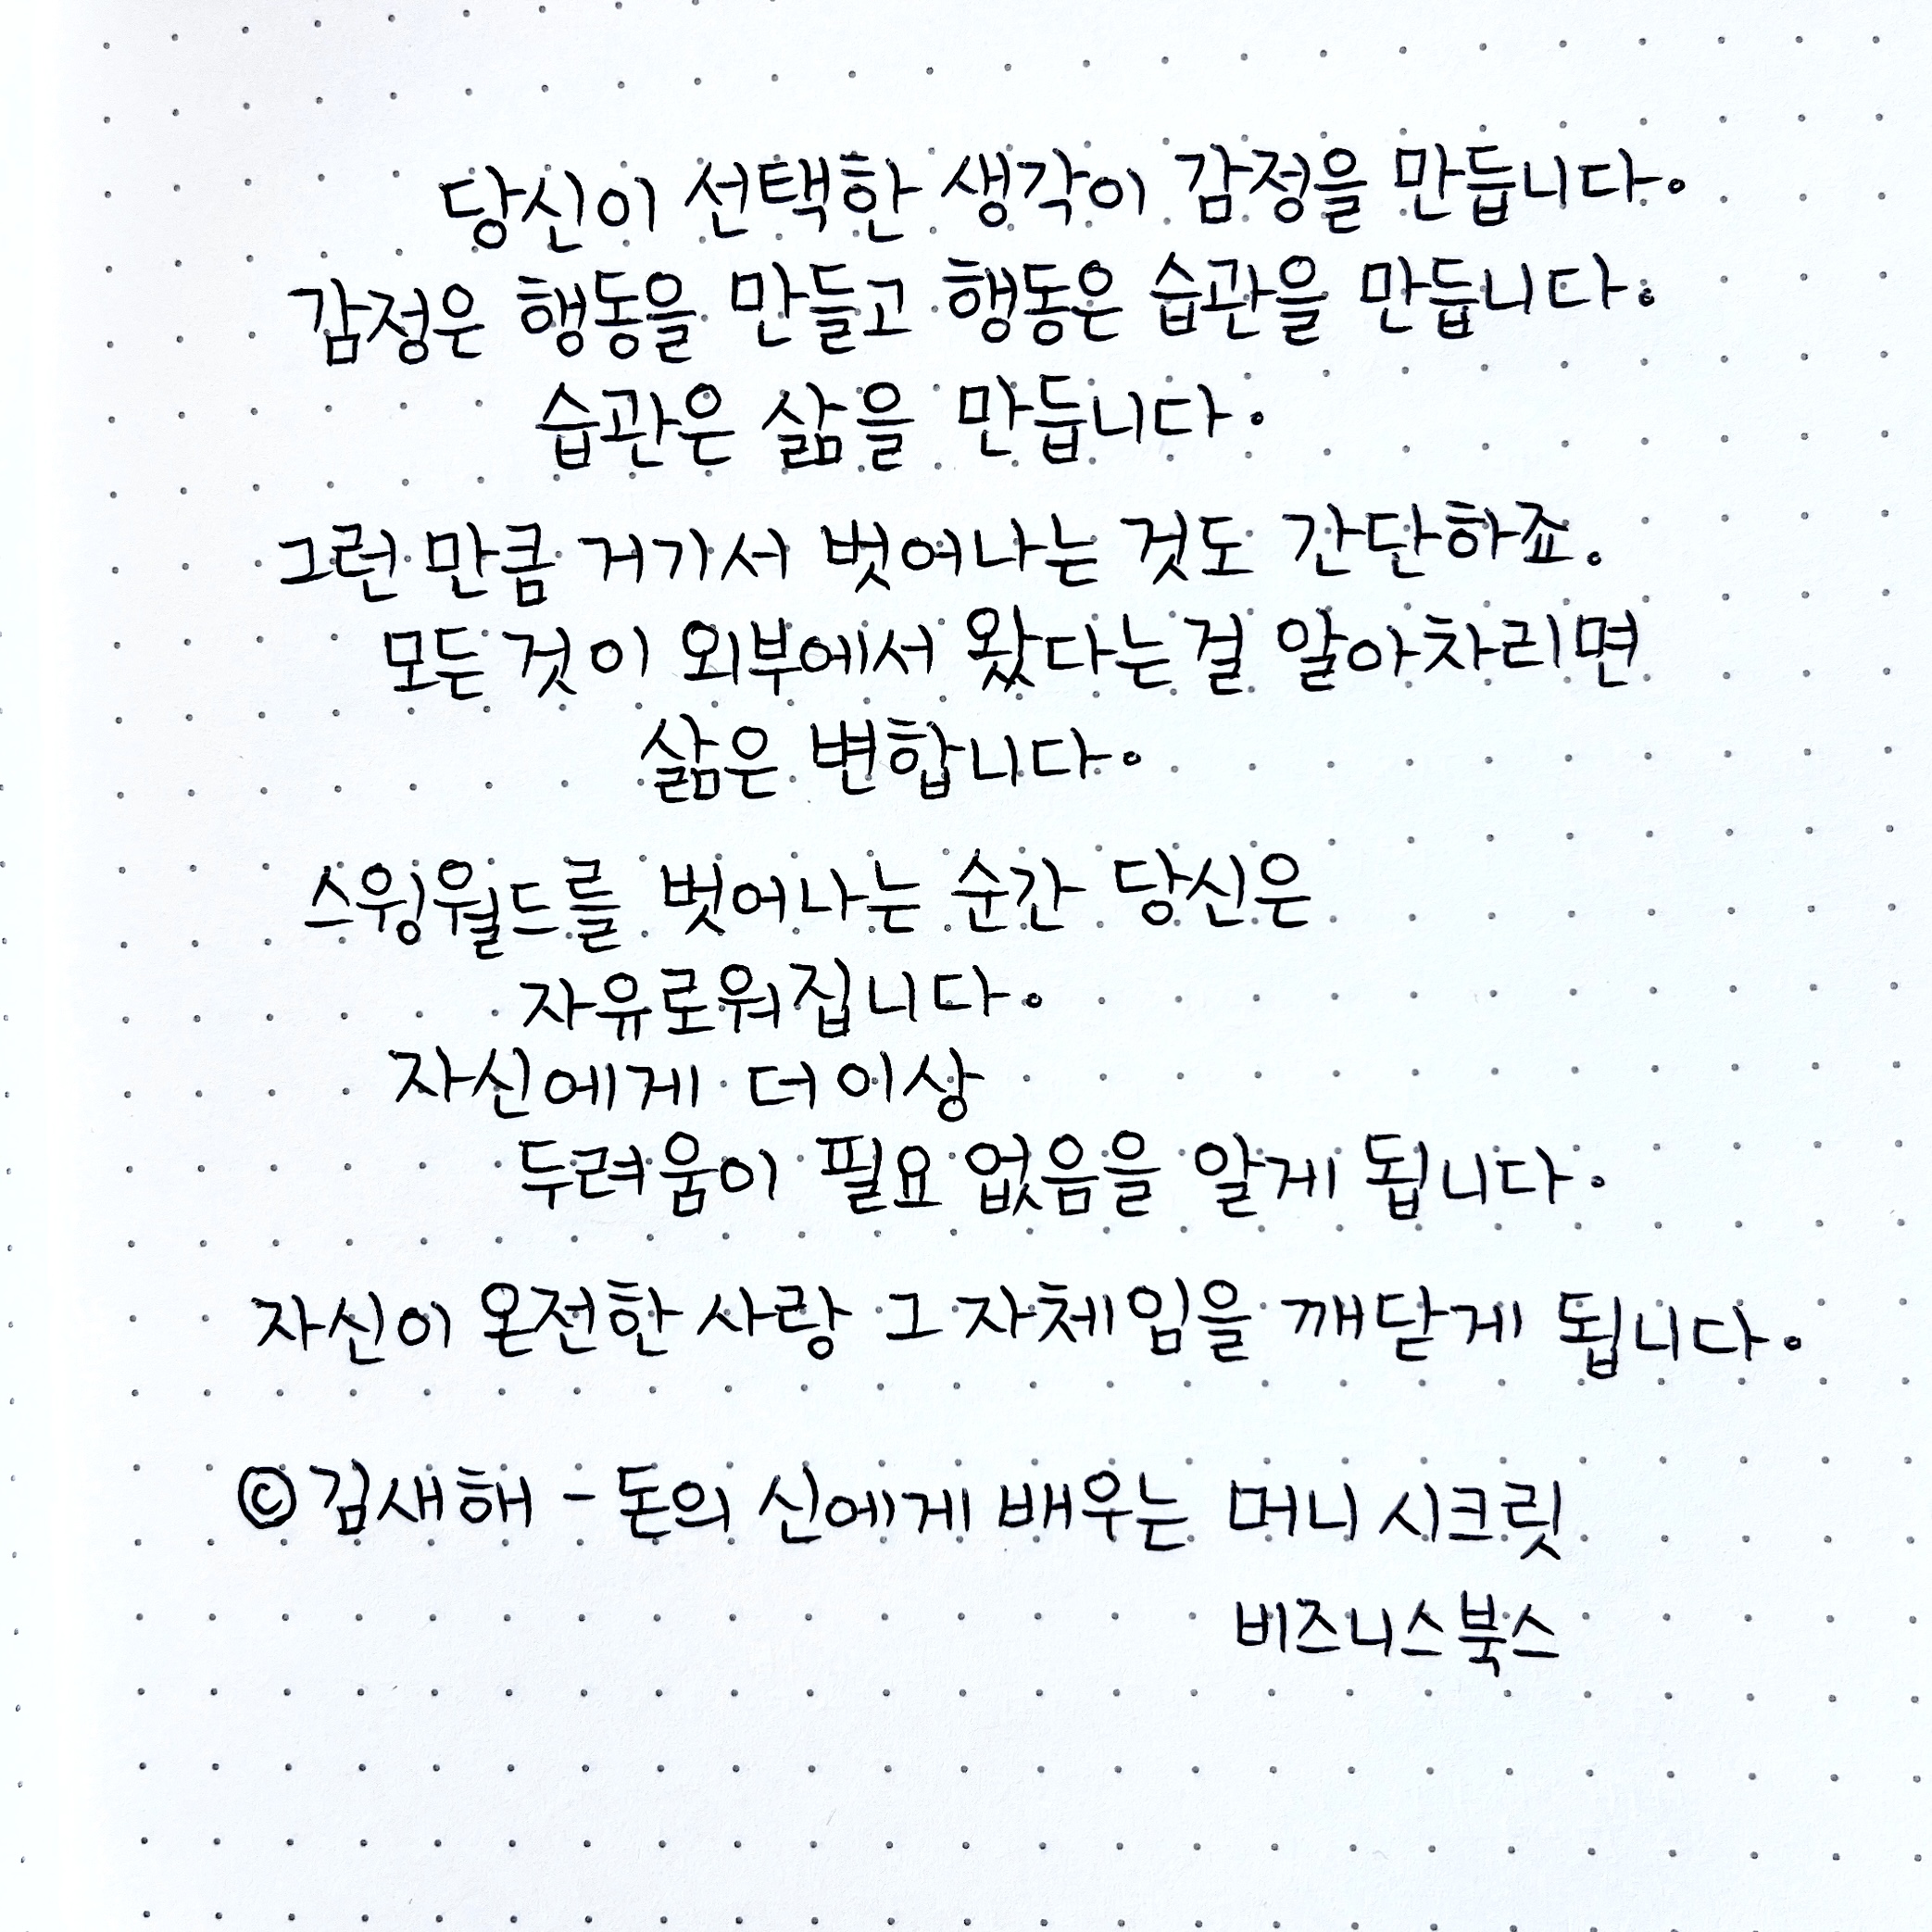 당신이 선택한 생각이 감정을 만듭니다.
감정은 행동을 만들고 행동은 습관을 만듭니다.
습관은 삶을 만듭니다.
그런 만큼 거기서 벗어나는 것도 간단하죠.
모든 것이 외부에서 왔다는 걸 알아차리면
삶은 변합니다.
스윙월드를 벗어나는 순간 당신은
자유로워집니다.
자신에게 더 이상
두려움이 필요 없음을 알게 됩니다.
자신이 온전한 사랑 그 자체임을 깨닫게 됩니다.
© 김새해 - 돈의 신에게 배우는 머니 시크릿
비즈니스북스